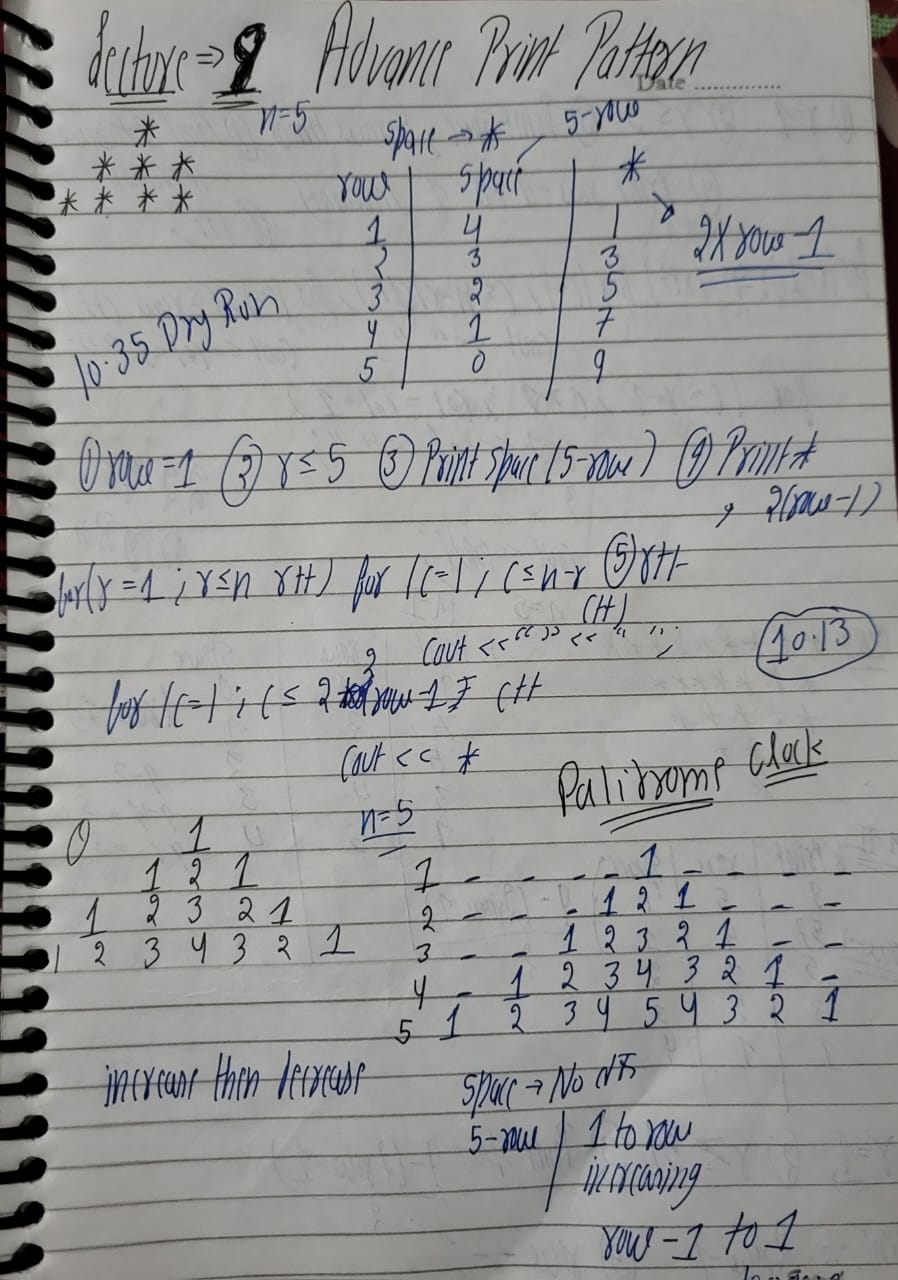 Lecture => 9 Advance Print Pattern
Date ..............
n=5
space → * 5-row
*
* * *
* * * *
row | space | *
1 | 4 | 1
2 | 3 | 3
3 | 2 | 5
4 | 1 | 7
5 | 0 | 9
2X row-1
10.35 Dry Run
① row=1 ② r≤5 ③ Print space (5-row) ④ Print *
, 2(row-1)
for(r=1; r≤n r++) for (c=1; c≤n-r ⑤ r++
c++)
cout <<" " << " ";
10.13
for (c=1; c≤ 2 row-1; c++
cout << *
Palitrome Clock
n=5
1
1 2 1
1 2 3 2 1
1 2 3 4 3 2 1
1 - - - - 1 - - - -
2 - - - 1 2 1 - - -
3 - - 1 2 3 2 1 - -
4 - 1 2 3 4 3 2 1 -
5 1 2 3 4 5 4 3 2 1
increase then decrease
space → No
5-row | 1 to row
increasing
row-1 to 1